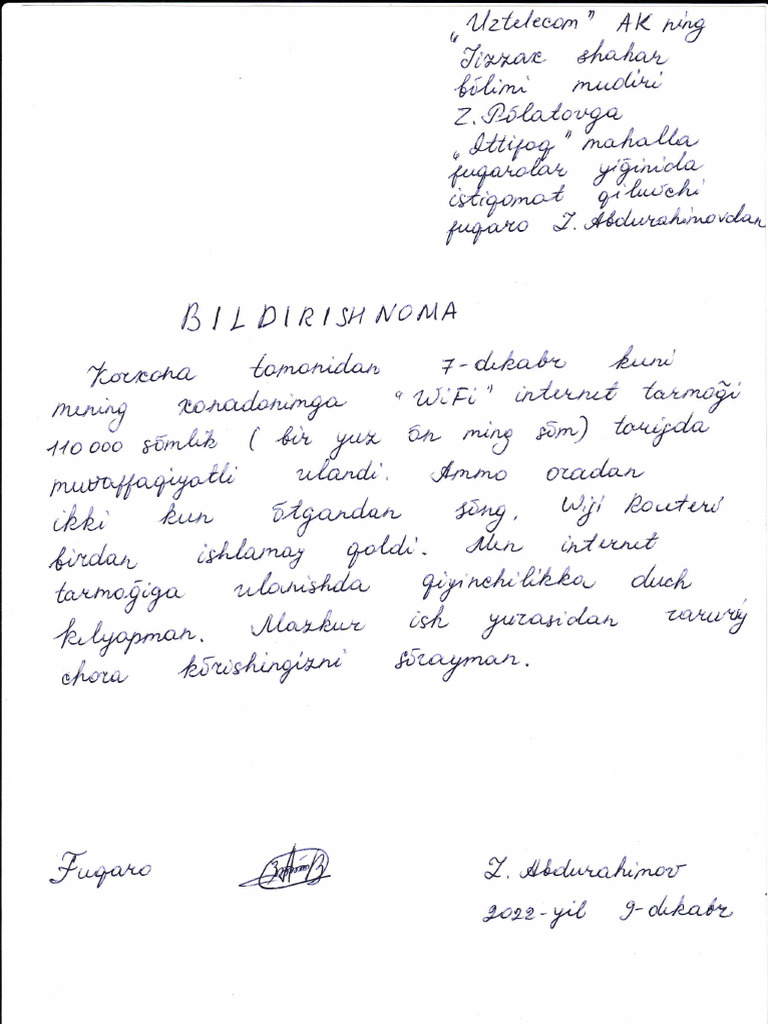 „Uztelecom” AK ning
Jizzax shahar
bōlimi mudiri
Z. Pōlatovga
„Ittifoq” mahalla
fuqarolar yiğinida
istiqomat qiluvchi
fuqaro J. Abdurahimovdan
BILDIRISHNOMA
Korxona tomonidan 7-dekabr kuni
mening xonadonimga “WiFi” internet tarmoği
110 000 sōmlik ( bir yuz ōn ming sōm) tarifda
muvaffaqiyatli ulandi. Ammo oradan
ikki kun ōtgandan sōng, Wifi Routeri
birdan ishlamay qoldi. Men internet
tarmoğiga ulanishda qiyinchilikka duch
kelyapman. Mazkur ish yuzasidan zaruriy
chora kōrishingizni sōrayman.
Fuqaro J. Abdurahimov
2022-yil 9-dekabr